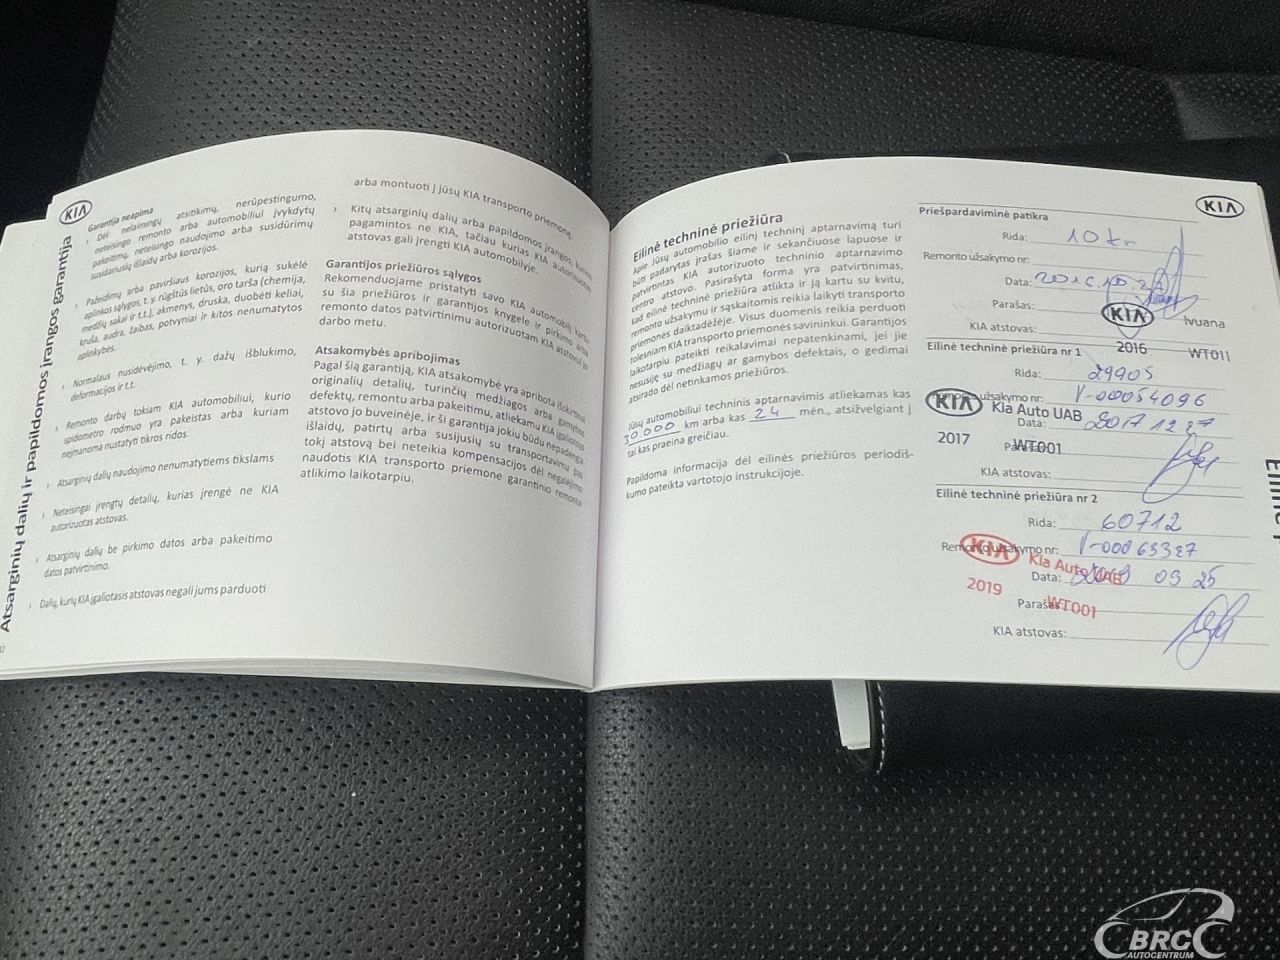 Atsarginių dalių ir papildomos įrangos garantija
KIA
Garantija neapima
› Dėl nelaimingų atsitikimų, nerūpestingumo,
neteisingo remonto arba automobiliui įvykdytų
pakeitimų, neteisingo naudojimo arba susidūrimų
susidariusių išlaidų arba korozijos.
› Pažeidimų arba paviršiaus korozijos, kurią sukėlė
aplinkos sąlygos, t. y. rūgštūs lietūs, oro tarša (chemija,
medžių sakai ir t.t.), akmenys, druska, duobėti keliai,
kruša, audra, žaibas, potvyniai ir kitos nenumatytos
aplinkybės.
› Normalaus nusidėvėjimo, t. y. dažų išblukimo,
deformacijos ir t.t.
› Remonto darbų tokiam KIA automobiliui, kurio
spidometro rodmuo yra pakeistas arba kuriam
neįmanoma nustatyti tikros ridos.
› Atsarginių dalių naudojimo nenumatytiems tikslams
› Neteisingai įrengtų detalių, kurias įrengė ne KIA
autorizuotas atstovas.
› Atsarginių dalių be pirkimo datos arba pakeitimo
datos patvirtinimo.
› Dalių, kurių KIA įgaliotasis atstovas negali jums parduoti
arba montuoti į jūsų KIA transporto priemonę.
› Kitų atsarginių dalių arba papildomos įrangos, kurios
pagamintos ne KIA, tačiau kurias KIA autorizuotas
atstovas gali įrengti KIA automobilyje.
Garantijos priežiūros sąlygos
Rekomenduojame pristatyti savo KIA automobilį kartu
su šia priežiūros ir garantijos knygele ir pirkimo arba
remonto datos patvirtinimu autorizuotam KIA atstovui jo
darbo metu.
Atsakomybės apribojimas
Pagal šią garantiją, KIA atsakomybė yra apribota išskirtinai
originalių detalių, turinčių medžiagos arba gamybos
defektų, remontu arba pakeitimu, atliekamu KIA įgaliotojo
atstovo jo buveinėje, ir ši garantija jokiu būdu nepadengia
išlaidų, patirtų arba susijusių su transportavimu pas
tokį atstovą bei neteikia kompensacijos dėl negalėjimo
naudotis KIA transporto priemone garantinio remonto
atlikimo laikotarpiu.
Eilinė techninė priežiūra
Apie Jūsų automobilio eilinį techninį aptarnavimą turi
būti padarytas įrašas šiame ir sekančiuose lapuose ir
patvirtintas KIA autorizuoto techninio aptarnavimo
centro atstovo. Pasirašyta forma yra patvirtinimas,
kad eilinė techninė priežiūra atlikta ir ją kartu su kvitu,
remonto užsakymu ir sąskaitomis reikia laikyti transporto
priemonės daiktadėžėje. Visus duomenis reikia perduoti
tolesniam KIA transporto priemonės savininkui. Garantijos
laikotarpiu pateikti reikalavimai nepatenkinami, jei jie
nesusiję su medžiagų ar gamybos defektais, o gedimai
atsirado dėl netinkamos priežiūros.
Jūsų automobiliui techninis aptarnavimas atliekamas kas
30.000 km arba kas 24 mėn., atsižvelgiant į
tai kas praeina greičiau.
Papildoma informacija dėl eilinės priežiūros periodiš-
kumo pateikta vartotojo instrukcijoje.
KIA
Priešpardaviminė patikra
Rida: 10 km
Remonto užsakymo nr:
Data:
Parašas:
KIA
Ivuana
KIA atstovas:
2016
WT011
Eilinė techninė priežiūra nr 1
Rida: 29905
Remonto užsakymo nr: V-00054096
KIA Kia Auto UAB
Data: 2017 12 27
2017
Parašas:
WT001
KIA atstovas:
Eilinė techninė priežiūra nr 2
Rida: 60712
Remonto užsakymo nr: V-00063327
KIA Kia Auto UAB
Data: 2019 09 25
2019
Parašas:
WT001
KIA atstovas:
BRC
AUTOCENTRUM